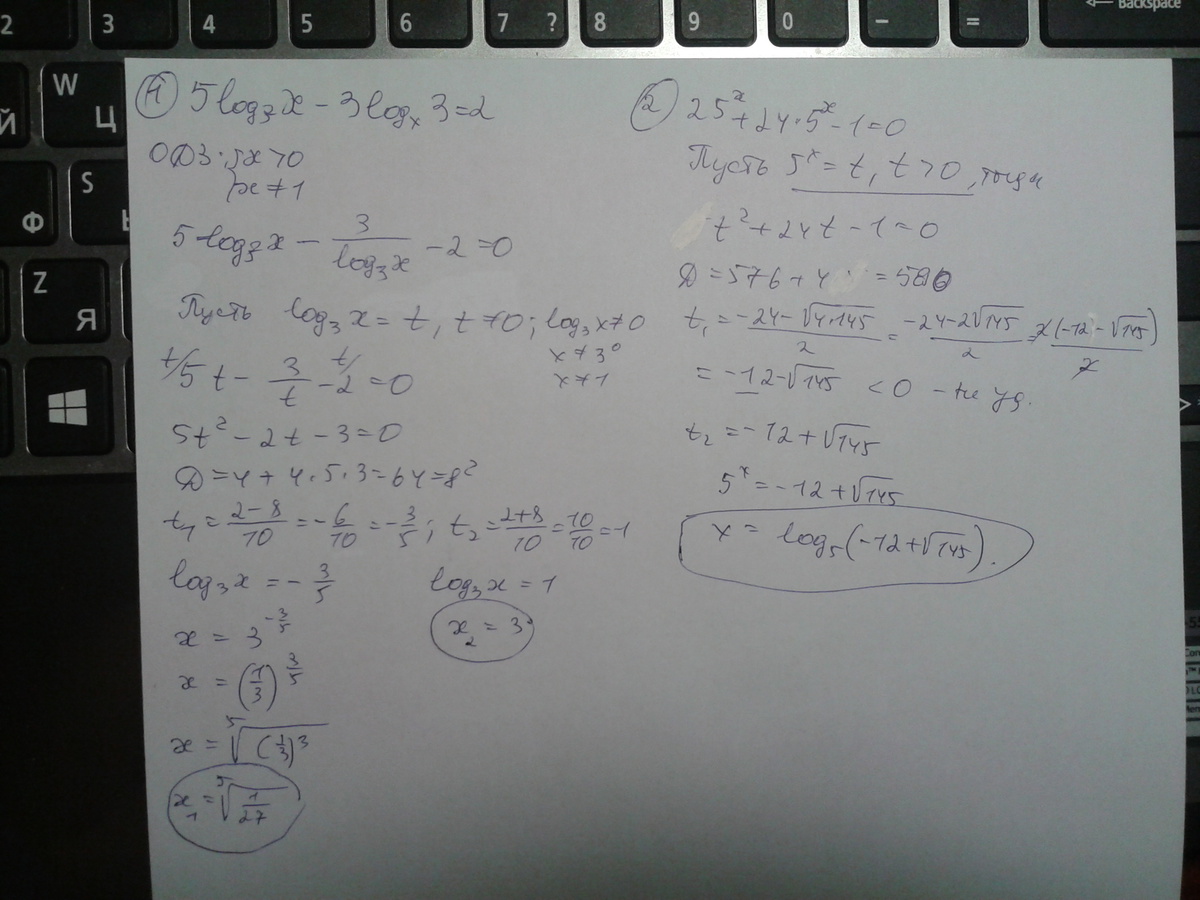 2 3 4 5 6 7 ? 8 9 0 - = ← Backspace
W
Й Ц
S
Ф Ы
Z
Я
① 5log₃x - 3logₓ3=2
ОДЗ: {x>0
{x≠1
5log₃x - 3/log₃x - 2=0
Пусть log₃x = t, t≠0; log₃x≠0
x≠3⁰
x≠1
t/ 5t - 3/t - t/ 2 =0
5t² - 2t - 3=0
D=4+4·5·3=64=8²
t₁ = (2-8)/10 = -6/10 = -3/5; t₂ = (2+8)/10 = 10/10 = 1
log₃x = -3/5 log₃x = 1
x = 3^(-3/5) x₂ = 3
x = (1/3)^(3/5)
x = ⁵√((1/3)³)
x₁ = ⁵√(1/27)
② 25ˣ+24·5ˣ-1=0
Пусть 5ˣ=t, t>0, тогда
t²+24t-1=0
D=576+4 =580
t₁ = (-24-√(4·145))/2 = (-24-2√145)/2 = 2(-12-√145)/2
= -12-√145 <0 - не уд.
t₂ = -12+√145
5ˣ = -12+√145
x = log₅(-12+√145).